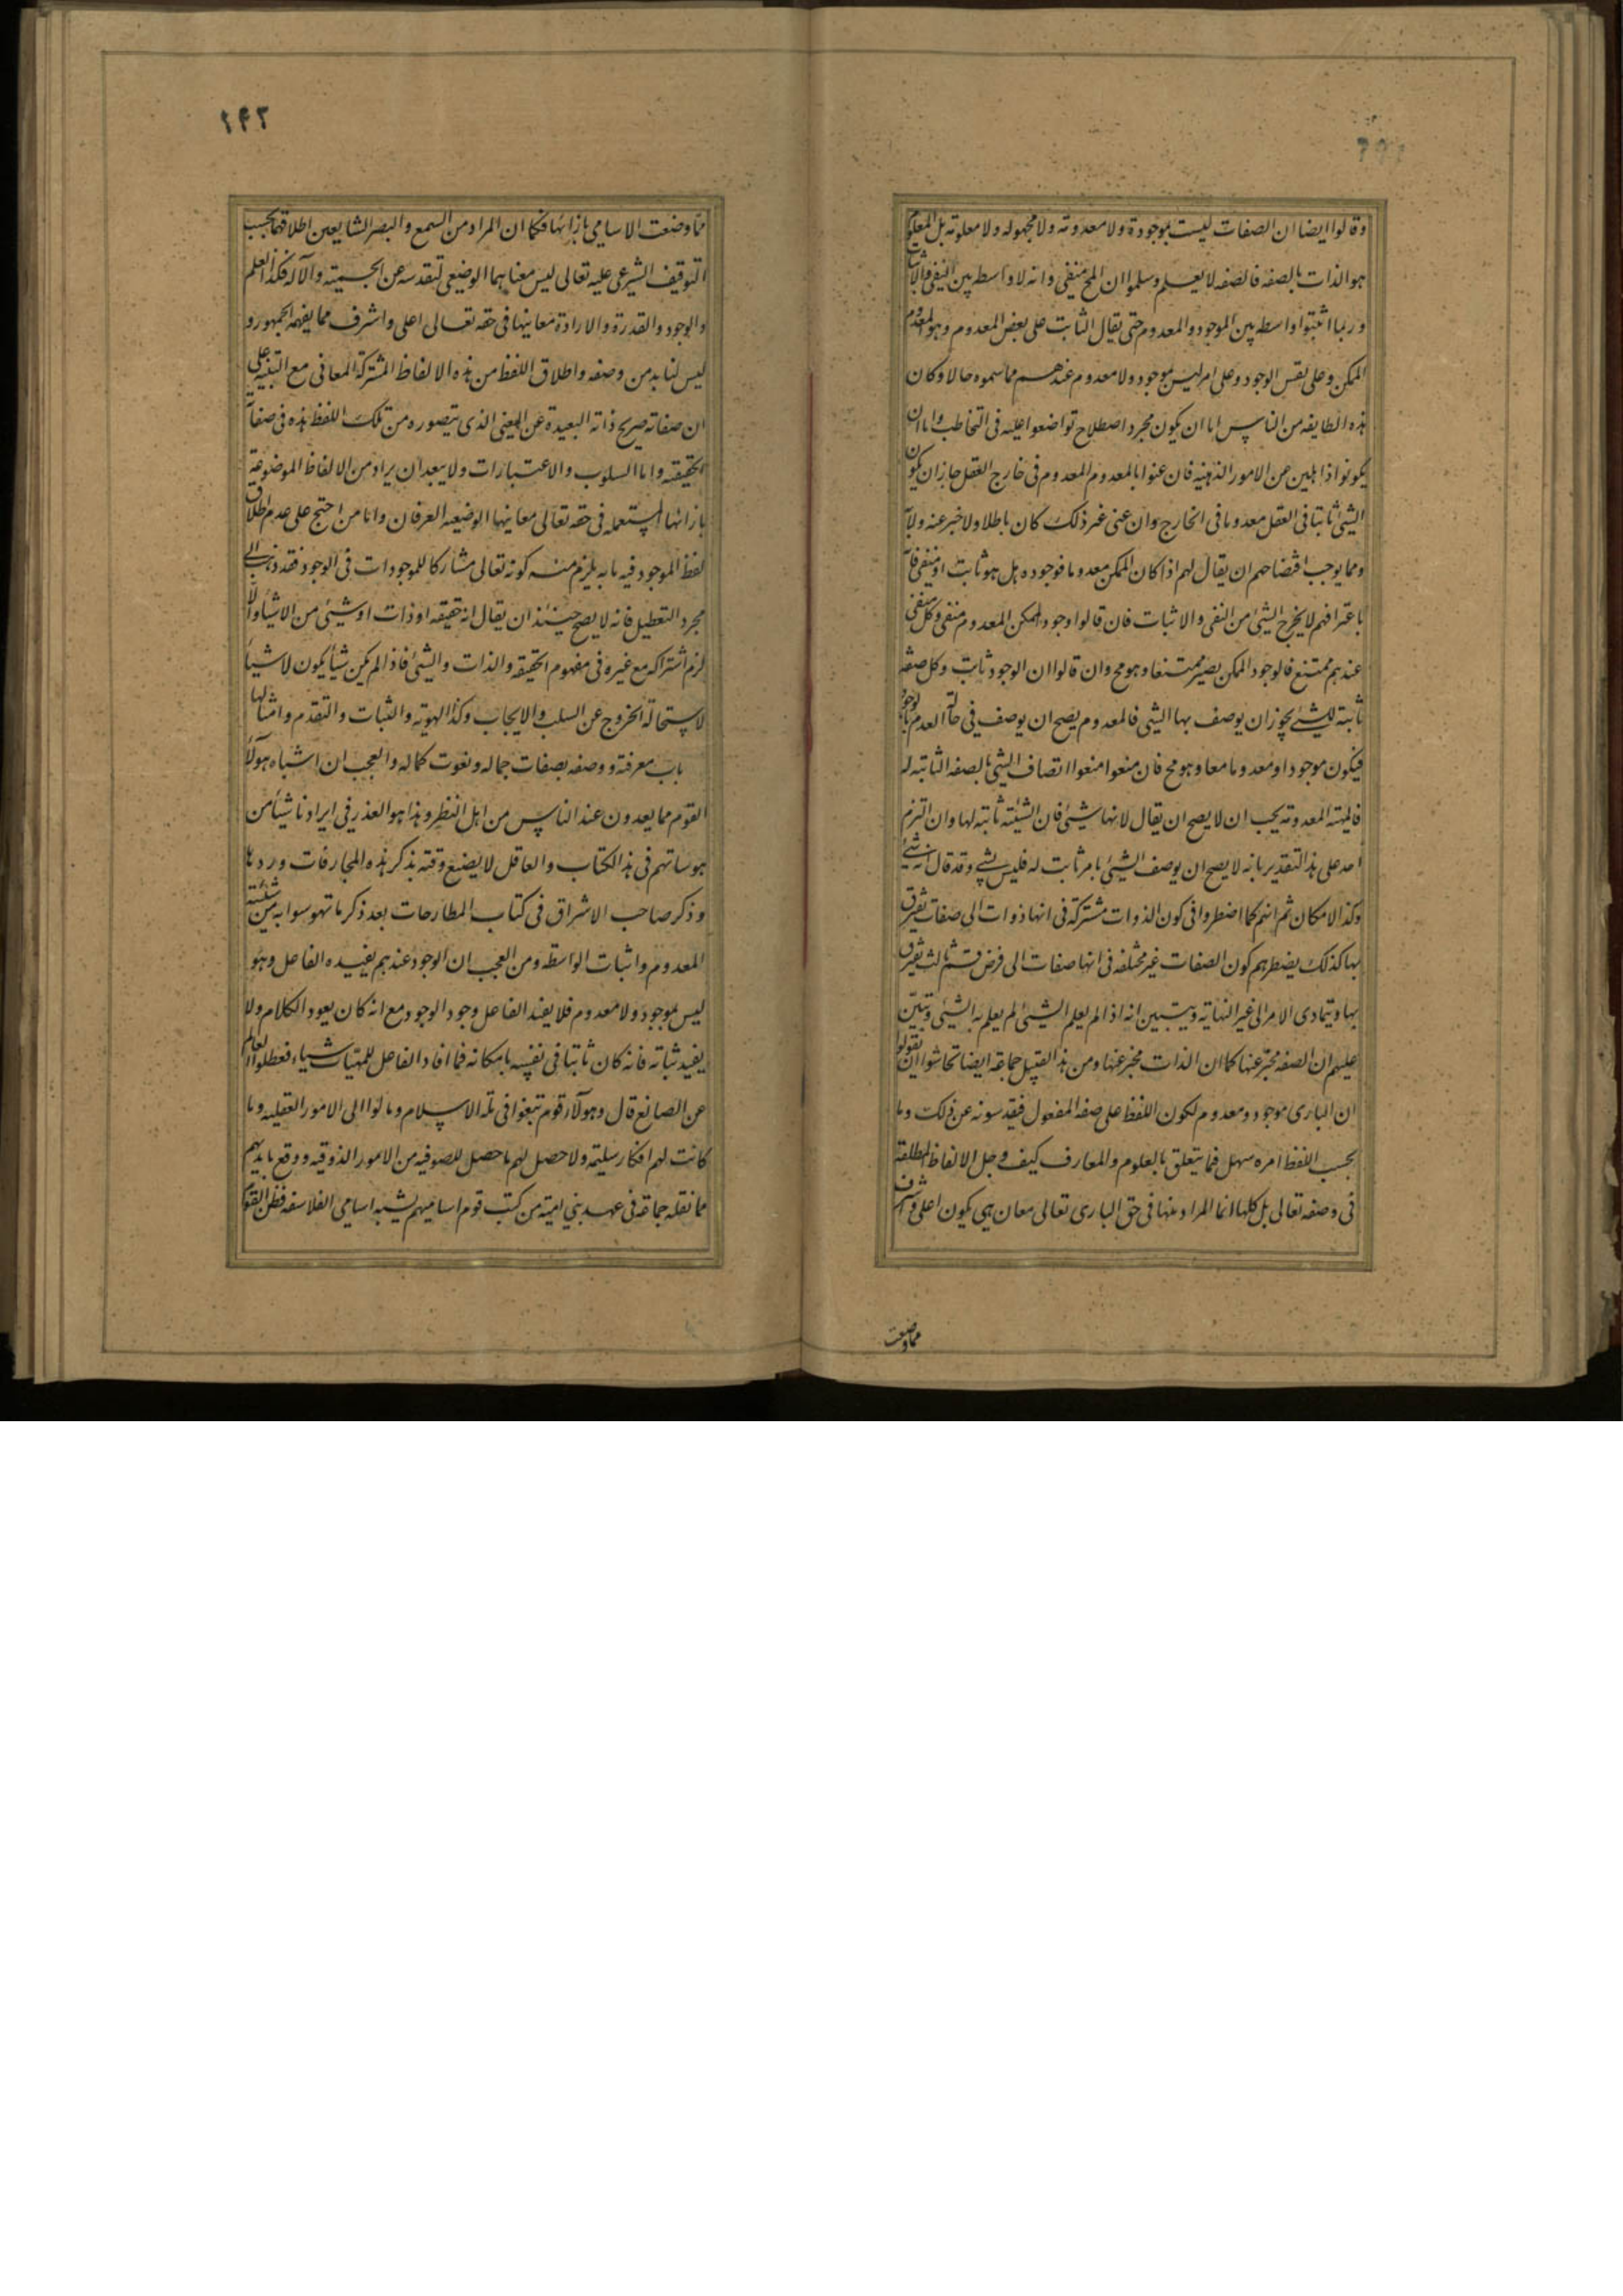 وقالوا ايضا ان الصفات ليست بموجودة ولا معدومة ولا مجهولة ولا معلومة بل المعلوم
هو الذات بالصفة فالصفه لا يعلم وسلموا ان المح منفى وانه لا واسطه بين النفى والاثبات
وربما اثبتوا واسطه بين الموجود والمعدوم حتى يقال الثابت على بعض المعدوم وهو المعدوم
الممكن وعلى نفس الوجود وعلى امر ليس بموجود ولا معدوم عندهم مما سموه حالا وكان
هذه الطايفه من الناس اما ان يكون مجرد اصطلاح تواضعوا عليه فى التخاطب واما ان
يكونوا ذاهلين عن الامور الذهنيه فان عنوا بالمعدوم المعدوم فى خارج العقل جاز ان يكون
الشئ ثابتا فى العقل معدوما فى الخارج وان عنى غير ذلك كان باطلا ولا خبر عنه ولا
ومما يوجب افتضاحهم ان يقال لهم اذا كان الممكن معدوما فوجوده هل هو ثابت او منفى فا
باعترافهم لا يخرج الشئ من النفى والاثبات فان قالوا وجود الممكن المعدوم منفى وكل منفى
عندهم ممتنع فالوجود الممكن يصير ممتنعا وهو مح وان قالوا ان الوجود ثابت وكل صفة
ثابتة للشئ يجوز ان يوصف بها الشئ فالمعدوم يصح ان يوصف فى حالة العدم بالوجود
فيكون موجودا ومعدوما معا وهو مح فان منعوا منعوا اتصاف الشئ بالصفه الثابتة له
فالمهية المعدومة يجب ان لا يصح ان يقال لانها شئ فان الشيئية ثابتة لها وان التزم
احد على هذا التقدير بانه لا يصح ان يوصف الشئ بامر ثابت له فليس بشئ وقد قال انه شئ
وكذا الامكان ثم انهم كما اضطروا فى كون الذوات مشتركة فى انها ذوات الى صفات يفترق
بها كذلك يضطرهم كون الصفات غير مختلفه فى انها صفات الى فرض قسم ثالث يفترق
بها ويتمادى الامر الى غير النهاية ويتبين انه اذا لم يعلم الشئ لم يعلم به الشئ وتبين
عليهم ان الصفه مخبر عنها كما ان الذات مخبر عنها ومن هذا القبيل جماعة ايضا تحاشوا ان يقولوا
ان البارى موجود ومعدوم لكون اللفظ على صفه المفعول فيقدسونه عن ذلك وما
بحسب اللفظ امره سهل فيما يتعلق بالعلوم والمعارف كيف وجل الالفاظ المطلقة
فى وصفه تعالى بل كلها انما المراد منها فى حق البارى تعالى معان هى يكون اعلى واشرف
مما وضعت
٢٤٢
مما وضعت الاسامى بازائها فكما ان المراد من السمع والبصر الشايعين اطلاقهما بحسب
التوقيف الشرعى عليه تعالى ليس معناهما الوضعى لتقدسه عن الجسمية والآلة فكذا العلم
والوجود والقدرة والارادة معانيها فى حقه تعالى اعلى واشرف مما يفهمه الجمهور و
ليس لنا بد من وصفه واطلاق اللفظ من هذه الالفاظ المشتركة المعانى مع التنبيه على
ان صفاته صريح ذاته البعيدة عن المعنى الذى يتصوره من تلك اللفظ هذه فى صفاته
الحقيقيه واما السلوب والاعتبارات ولا يبعد ان يراد من الالفاظ الموضوعة
بازائها المستعمله فى حقه تعالى معانيها الوضعيه العرفان واما من احتج على عدم اطلاق
لفظ الموجود فيه بانه يلزم منه كونه تعالى مشاركا للموجودات فى الوجود فقد ذهب الى
مجرد التعطيل فانه لا يصح حينئذ ان يقال انه حقيقه او ذات او شئ من الاشياء والا
لزم اشتراكه مع غيره فى مفهوم الحقيقه والذات والشئ فاذا لم يكن شيئا يكون لا شيئا
لاستحالة الخروج عن السلب والايجاب وكذا الهوية والثبات والتقدم وامثالها
باب معرفته ووصفه بصفات جماله ونعوت كماله والعجب ان اشباه هولاء
القوم مما يعدون عند الناس من اهل النظر وهذا هو العذر فى ايرادنا شيئا من
هوساتهم فى هذا الكتاب والعاقل لا يضيع وقته بذكر هذه المجازفات وردها
وذكر صاحب الاشراق فى كتاب المطارحات بعد ذكر ما تهوسوا به من شيئية
المعدوم واثبات الواسطه ومن العجب ان الوجود عندهم يفيده الفاعل وهو
ليس بموجود ولا معدوم فلا يفيد الفاعل وجود الوجود مع انه كان يعود الكلام ولا
يفيد ثباته فانه كان ثابتا فى نفسه بامكانه فما افاد الفاعل للمهيات شياء فعطلوا العالم
عن الصانع قال وهولاء قوم نبغوا فى ملة الاسلام ومالوا الى الامور العقليه وما
كانت لهم افكار سليمة ولا حصل لهم ما حصل للصوفيه من الامور الذوقيه ووقع بايديهم
مما نقله جماعة فى عهد بنى امية من كتب قوم اساميهم يشبه اسامى الفلاسفه فظن القوم